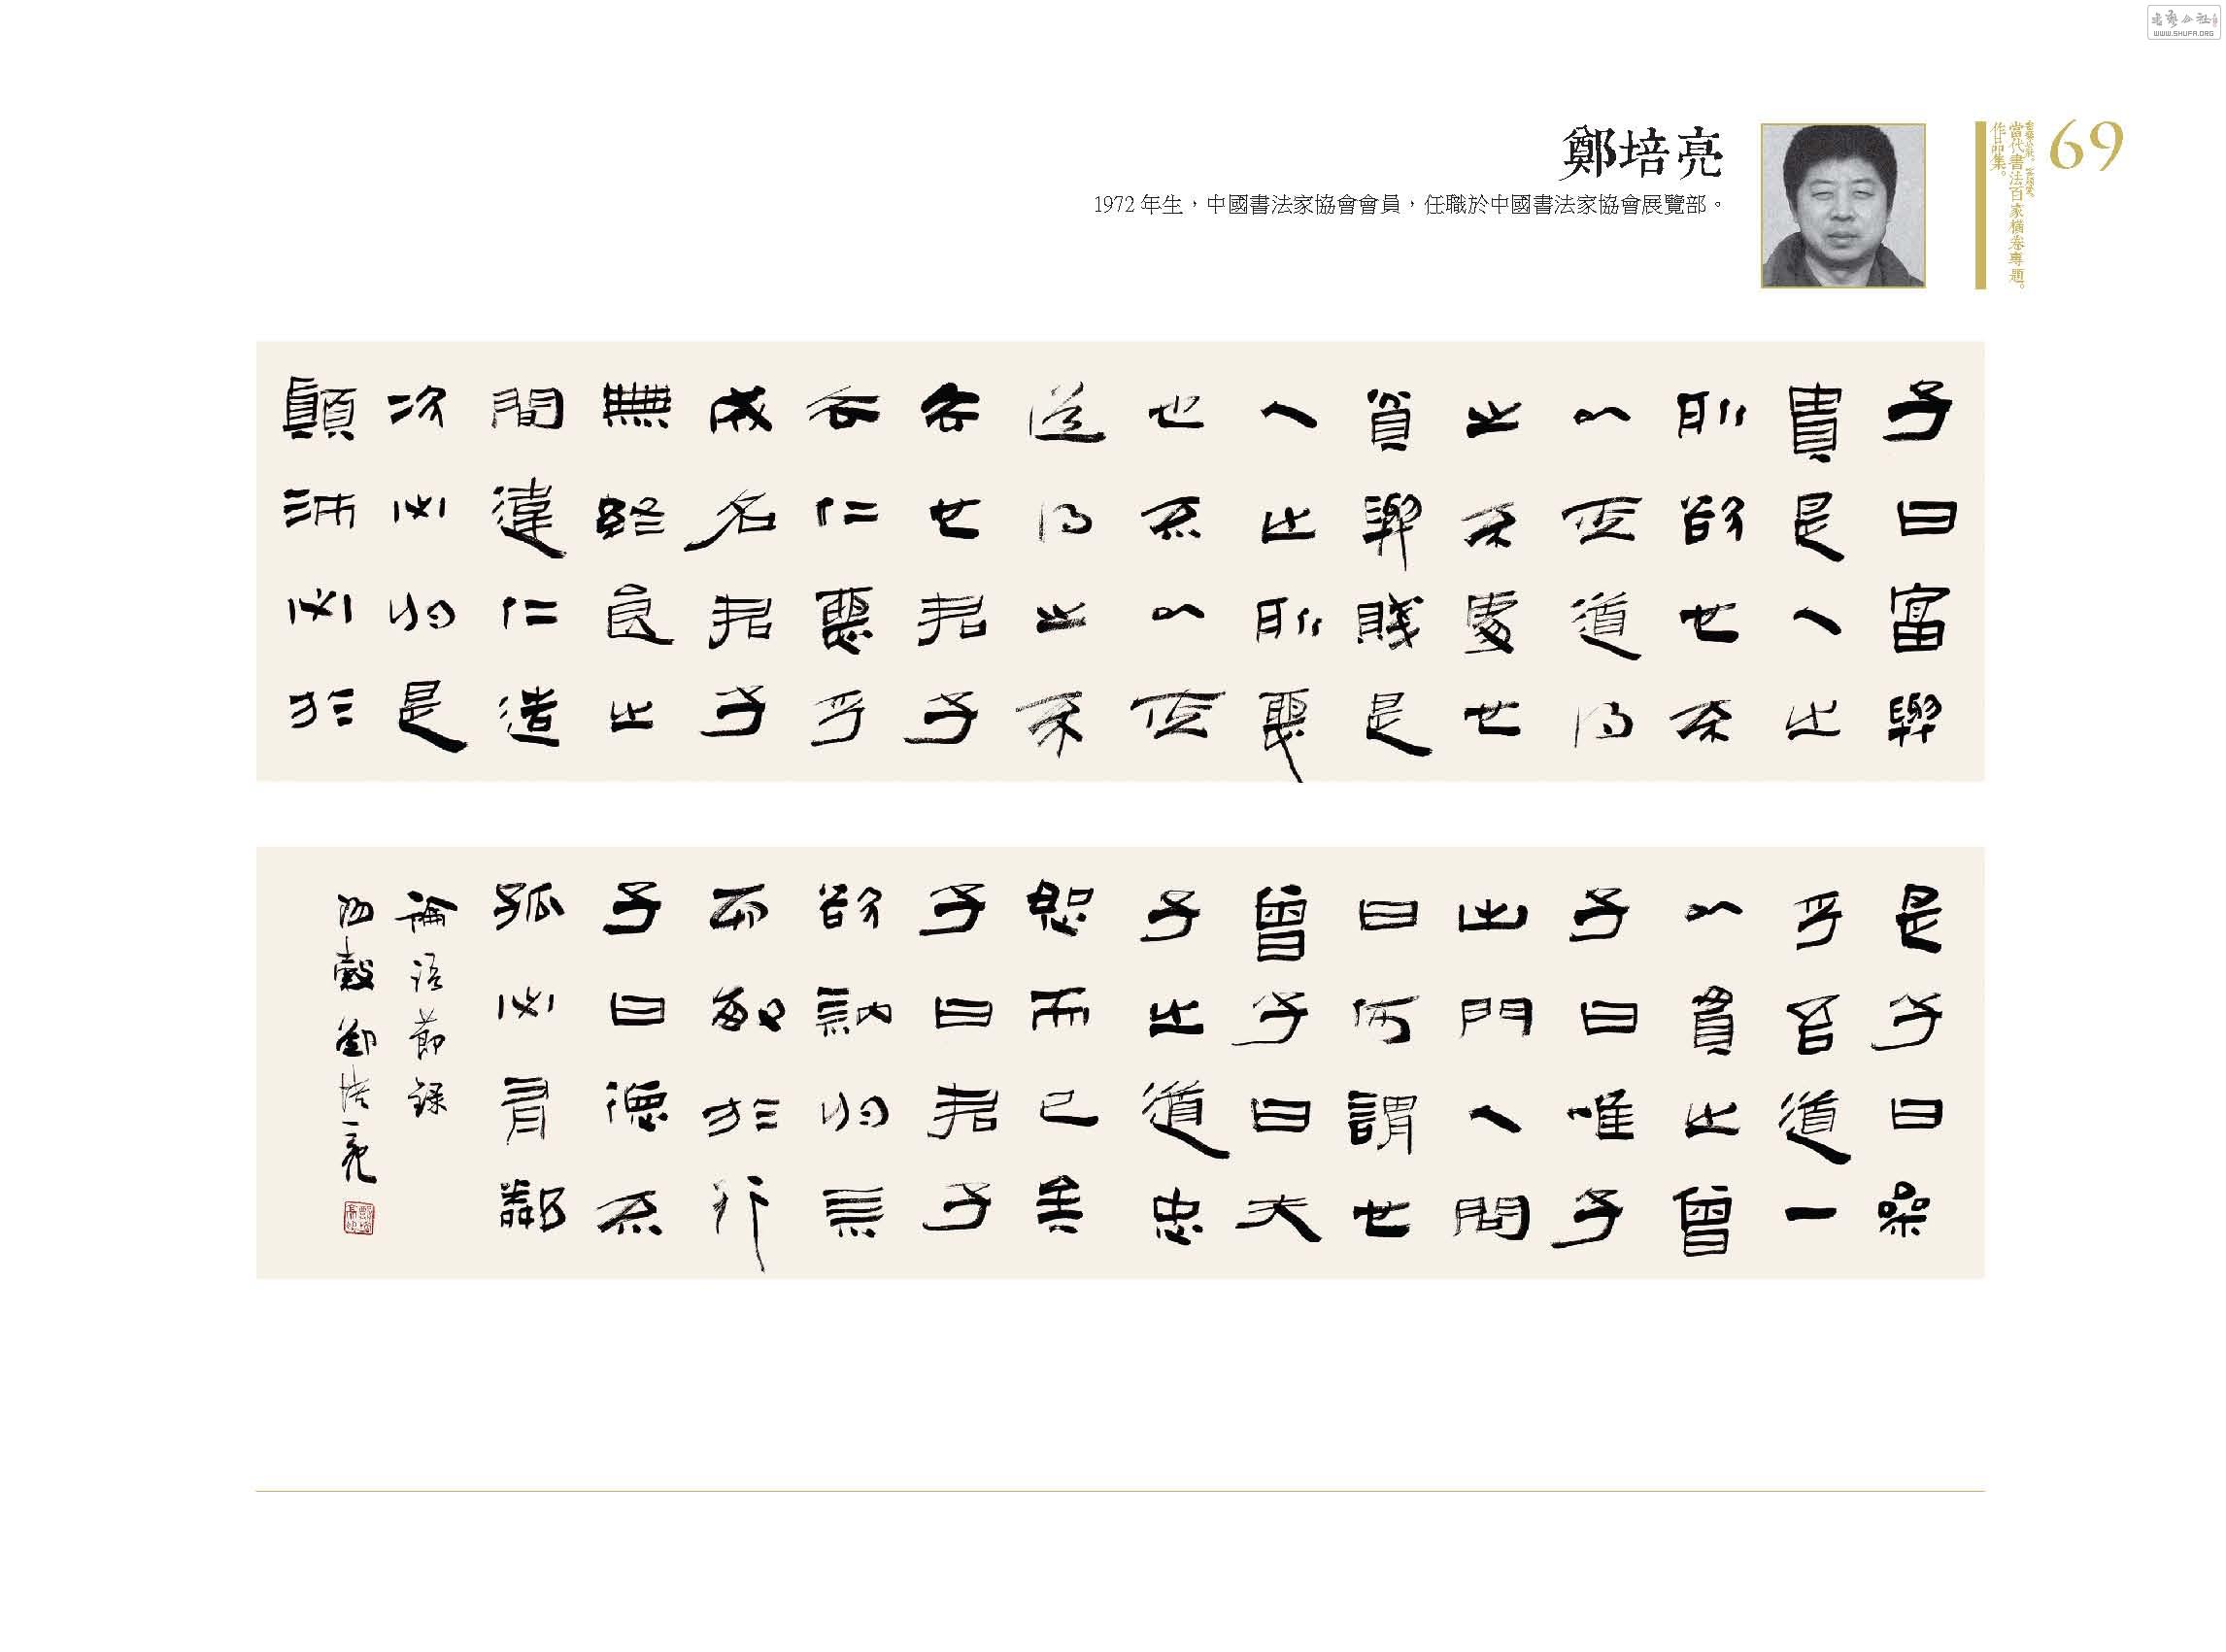 書藝公社
WWW.SHUFA.ORG
69
當代書法百家橫卷專題。
作品集。
鄭培亮
1972年生，中國書法家協會會員，任職於中國書法家協會展覽部。
子曰富與
貴是人之
所欲也不
以其道得
之不處也
貧與賤是
人之所惡
也不以其
道得之不
去也君子
去仁惡乎
成名君子
無終食之
間違仁造
次必於是
顛沛必於
是子曰參
乎吾道一
以貫之曾
子曰唯子
出門人問
曰何謂也
曾子曰夫
子之道忠
恕而已矣
子曰君子
欲訥於言
而敏於行
子曰德不
孤必有鄰
論語節錄
陽穀鄭培亮